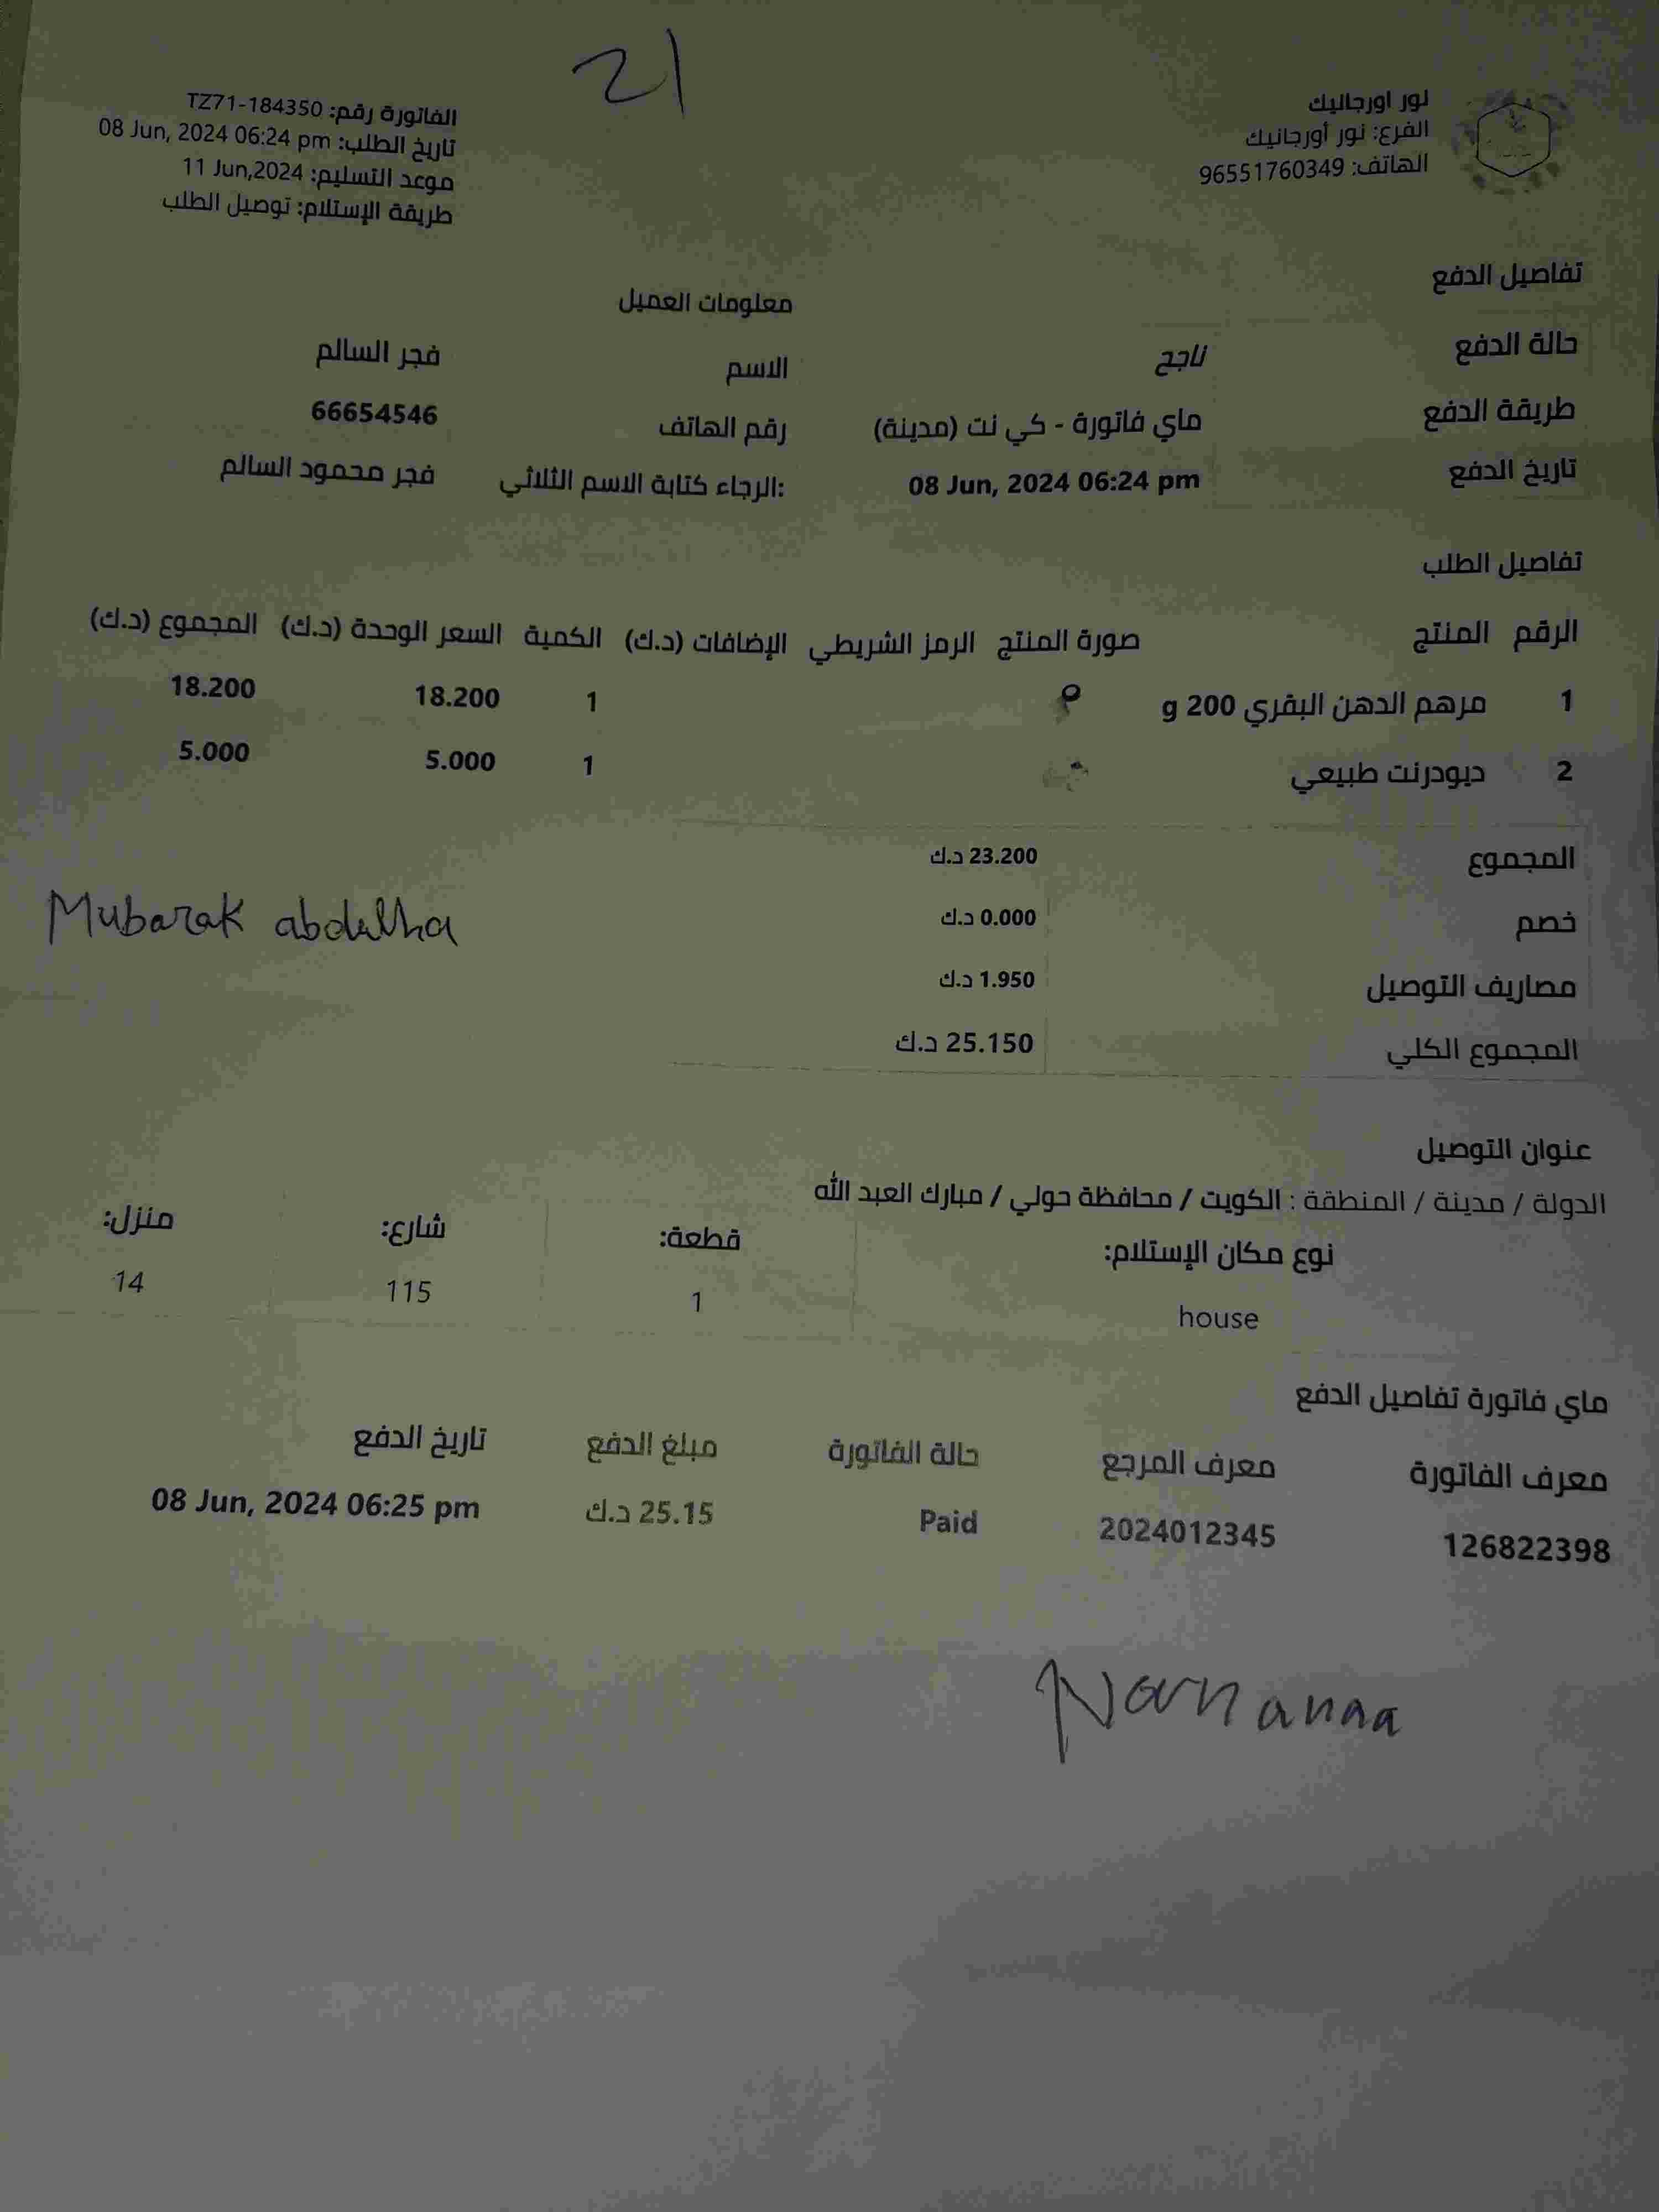 21
نور اورجانيك
الفرع: نور أورجانيك
الهاتف: 96551760349
الفاتورة رقم: TZ71-184350
تاريخ الطلب: 08 Jun, 2024 06:24 pm
موعد التسليم: 11 Jun,2024
طريقة الإستلام: توصيل الطلب
تفاصيل الدفع
حالة الدفع ناجح
طريقة الدفع ماي فاتورة - كي نت (مدينة)
تاريخ الدفع 08 Jun, 2024 06:24 pm
معلومات العميل
الاسم فجر السالم
رقم الهاتف 66654546
الرجاء كتابة الاسم الثلاثي: فجر محمود السالم
تفاصيل الطلب
الرقم المنتج صورة المنتج الرمز الشريطي الإضافات (د.ك) الكمية السعر الوحدة (د.ك) المجموع (د.ك)
1 مرهم الدهن البقري 200 g 1 18.200 18.200
2 ديودرنت طبيعي 1 5.000 5.000
المجموع 23.200 د.ك
خصم 0.000 د.ك
Mubarak
مصاريف التوصيل 1.950 د.ك
المجموع الكلي 25.150 د.ك
عنوان التوصيل
الدولة / مدينة / المنطقة : الكويت / محافظة حولي / مبارك العبد الله
نوع مكان الإستلام: قطعة: شارع: منزل:
house 1 115 14
ماي فاتورة تفاصيل الدفع
معرف الفاتورة معرف المرجع حالة الفاتورة مبلغ الدفع تاريخ الدفع
126822398 2024012345 Paid 25.15 د.ك 08 Jun, 2024 06:25 pm